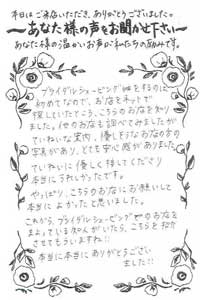 本日はご来店いただき、ありがとうございました。
〜あなた様の声をお聞かせ下さい〜
あなた様の温かいお声が私たちの励みです。
ブライダルシェービングをするのは
初めてなので、お店をネットで
探していたところ、こちらのお店を知り
ました。他のお店も調べてみましたが
ていねいな実術、優しそうなお店の方の
写真があり、とても安心感がありました。
ていねいに優しく接してくださり
本当にうれしかったです。
やっぱり、こちらのお店にお願いして
本当によかったと思いました。
これから、ブライダルシェービングのお店を
まよっている知人がいたら、こちらを紹介
させてもらいますね!!
本当に本当にありがとうござい
ました!!